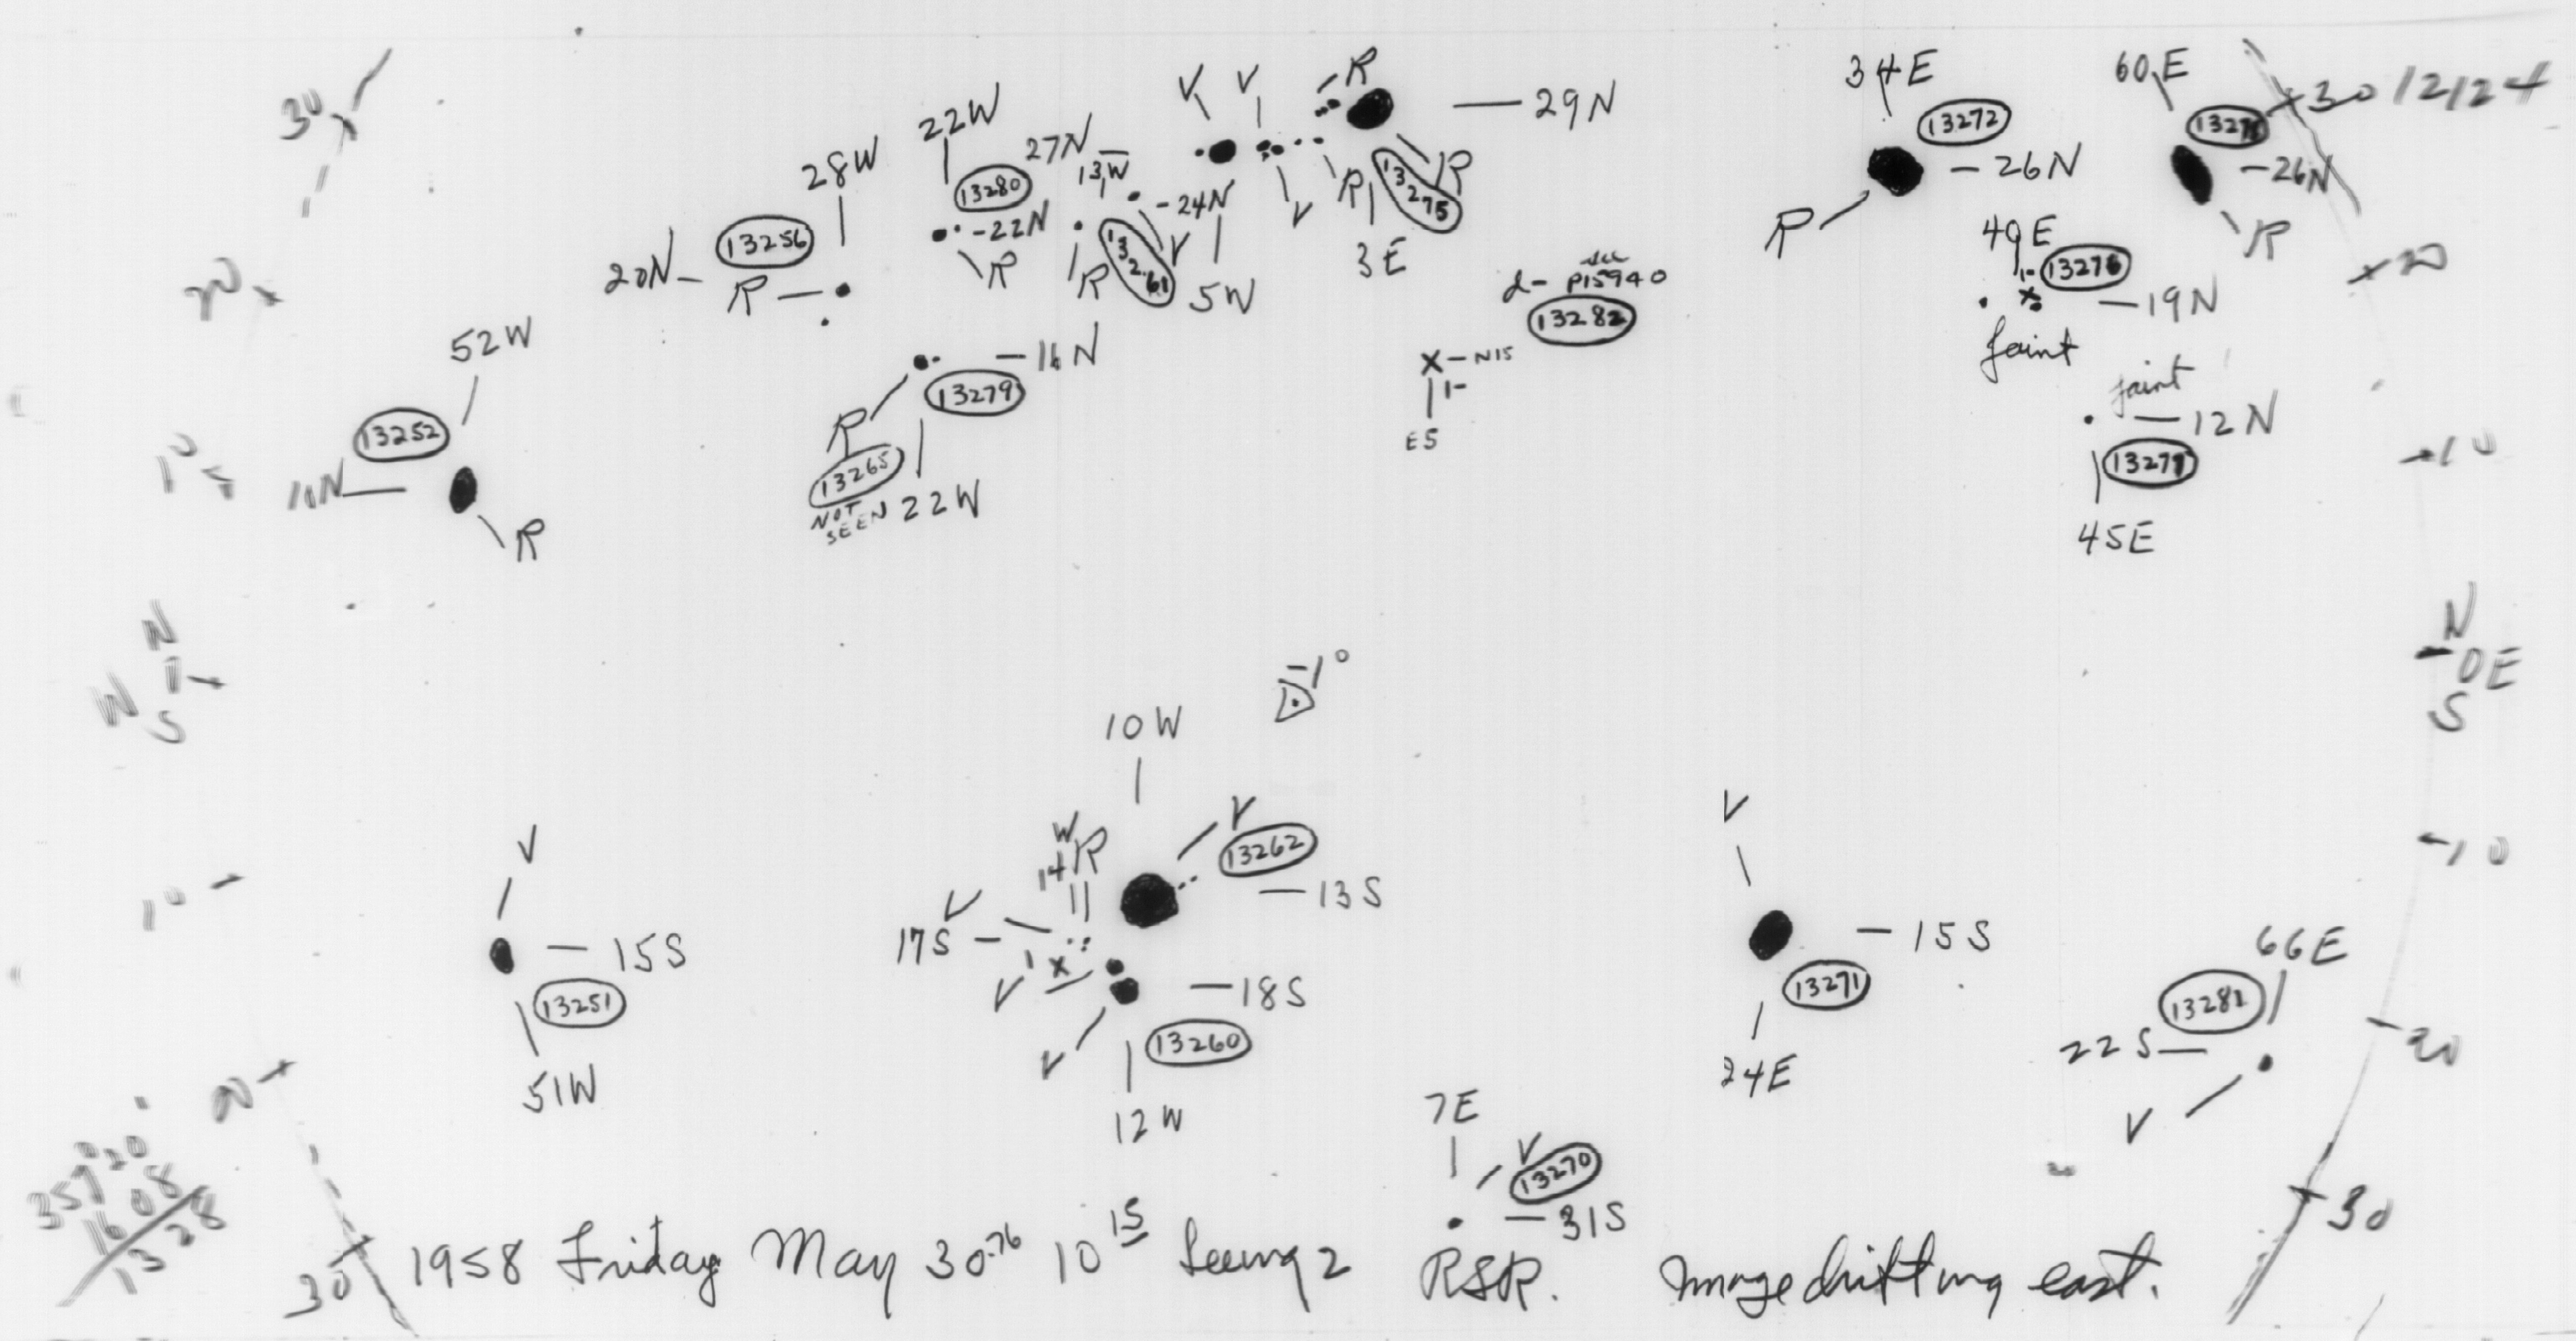 30
20
10
N
W
S
10
20
30
52W
13252
10N
R
20N
13256
R
28W
22W
13280
22N
R
27N
13W
24N
13261
R
V
5W
16N
13279
R
13265
NOT SEEN
22W
V V R
29N
V R
R
3E
13275
d- see
P15940
13282
X N15
E5
34E
13272
26N
R
60E
26N
R
30 12124
20
49E
13276
19N
faint
faint
12N
45E
10
N
0E
S
10
20
30
-1°
10W
V
13262
13S
W
14 R
V
17S
V
18S
V
13260
12W
V
15S
13251
51W
V
15S
13271
24E
66E
13281
22S
V
7E
V
13270
31S
1608
1328
1958 Friday May 30.76 10 15 Seeing 2 RSR. Image drifting east.